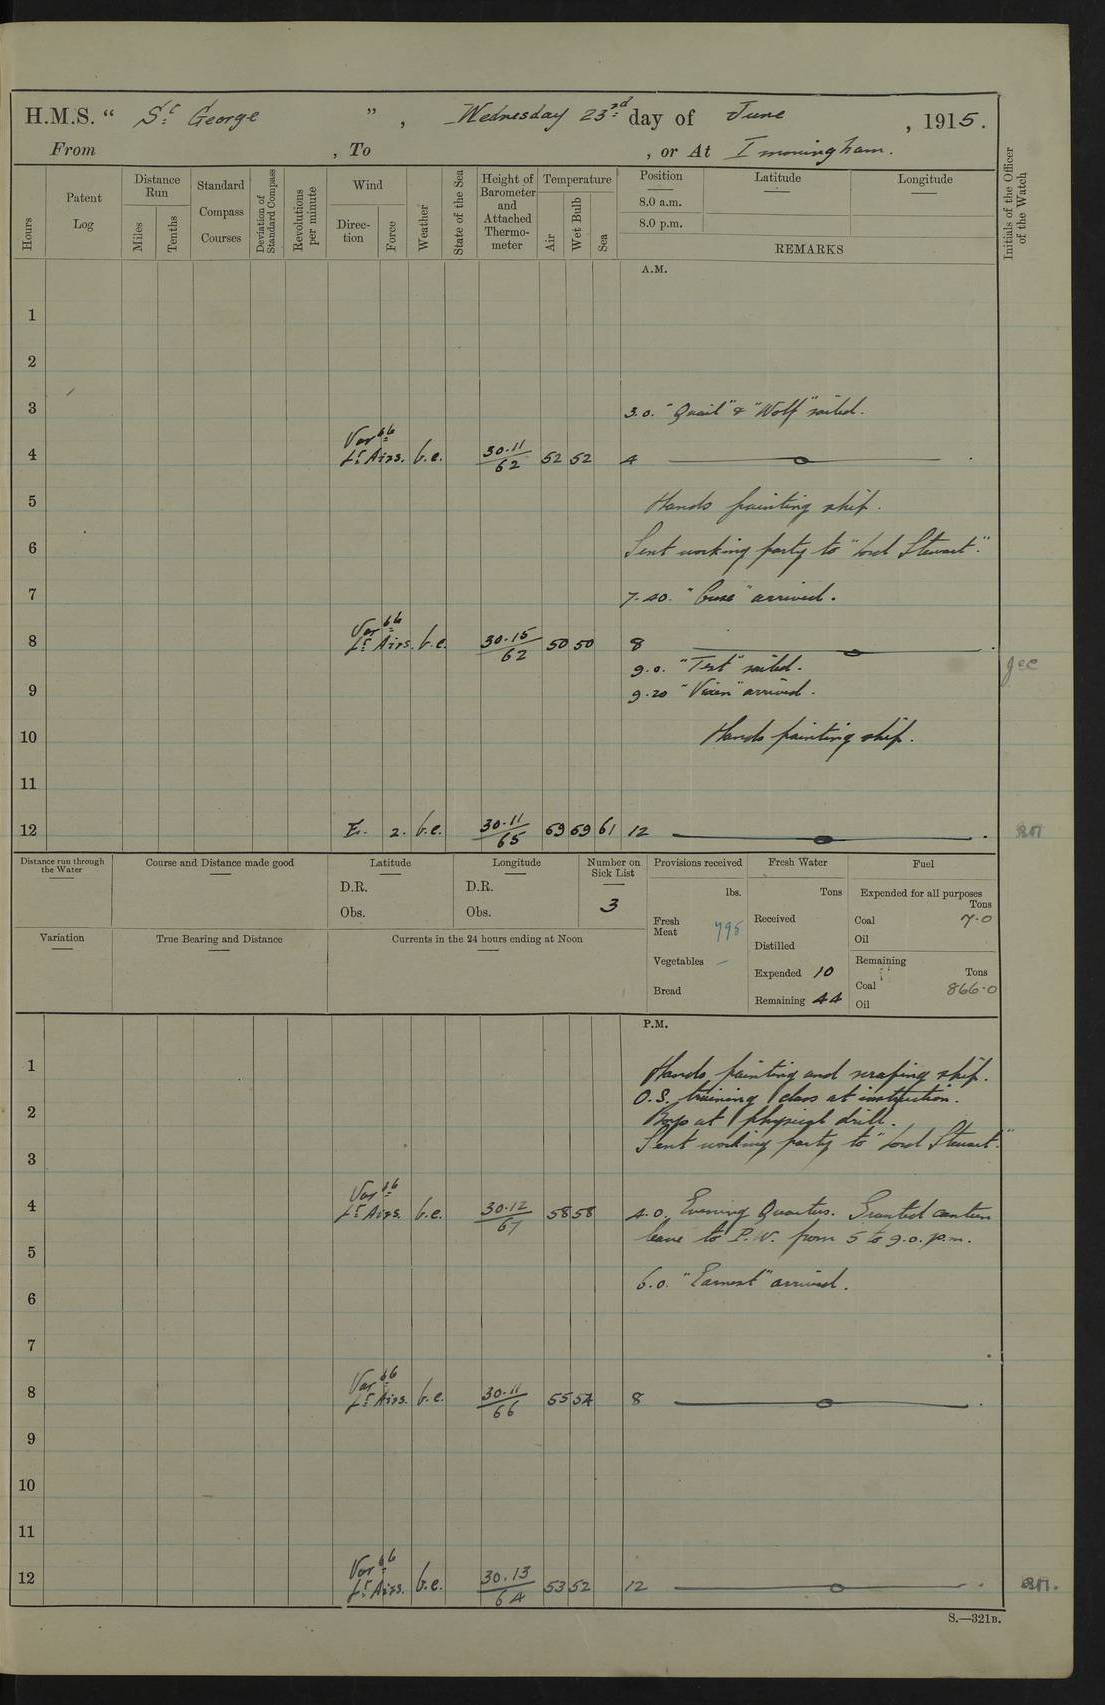 H.M.S. “ St George ” , Wednesday 23rd day of June , 1915.
From , To , or At Immingham.
Hours
Patent Log
Distance Run
Miles
Tenths
Standard Compass Courses
Deviation of Standard Compass
Revolutions per minute
Wind
Direction
Force
Weather
State of the Sea
Height of Barometer and Attached Thermometer
Temperature
Air
Wet Bulb
Sea
Position
8.0 a.m.
8.0 p.m.
Latitude
Longitude
REMARKS
Initials of the Officer of the Watch
A.M.
1
2
3 3.0. "Quail" & "Wolf" sailed.
Var ble
4 Lt Airs. b.c. 30.11/62 52 52 4
5 Hands painting ship.
6 Sent working party to "Lord Stewart."
7 7.40. "Ouse" arrived.
Var ble
8 Lt Airs. b.c. 30.15/62 50 50 8
9.0. "Test" sailed.
9 9.20 "Vixen" arrived.
10 Hands painting ship.
11
12 E. 2. b.c. 30.11/65 59 59 61 12
Distance run through the Water
Course and Distance made good
Latitude
D.R.
Obs.
Longitude
D.R.
Obs.
Number on Sick List
3
Provisions received
lbs.
Fresh Meat 795
Vegetables –
Bread
Fresh Water
Tons
Received
Distilled
Expended 10
Remaining 44
Fuel
Expended for all purposes
Tons
Coal 7.0
Oil
Remaining
Tons
Coal 866.0
Oil
Variation
True Bearing and Distance
Currents in the 24 hours ending at Noon
P.M.
1 Hands painting and scraping ship.
O.S. training class at instruction.
2 Boys at physical drill.
Sent working party to "Lord Stewart."
3
Var ble
4 Lt Airs. b.c. 30.12/67 58 58 4.0. Evening Quarters. Granted canteen
leave to P.W. from 5 to 9.0. p.m.
5
6.0. "Earnest" arrived.
6
7
Var ble
8 Lt Airs. b.c. 30.11/66 55 54 8
9
10
11
Var ble
12 Lt Airs. b.c. 30.13/64 53 52 12
S.—321B.